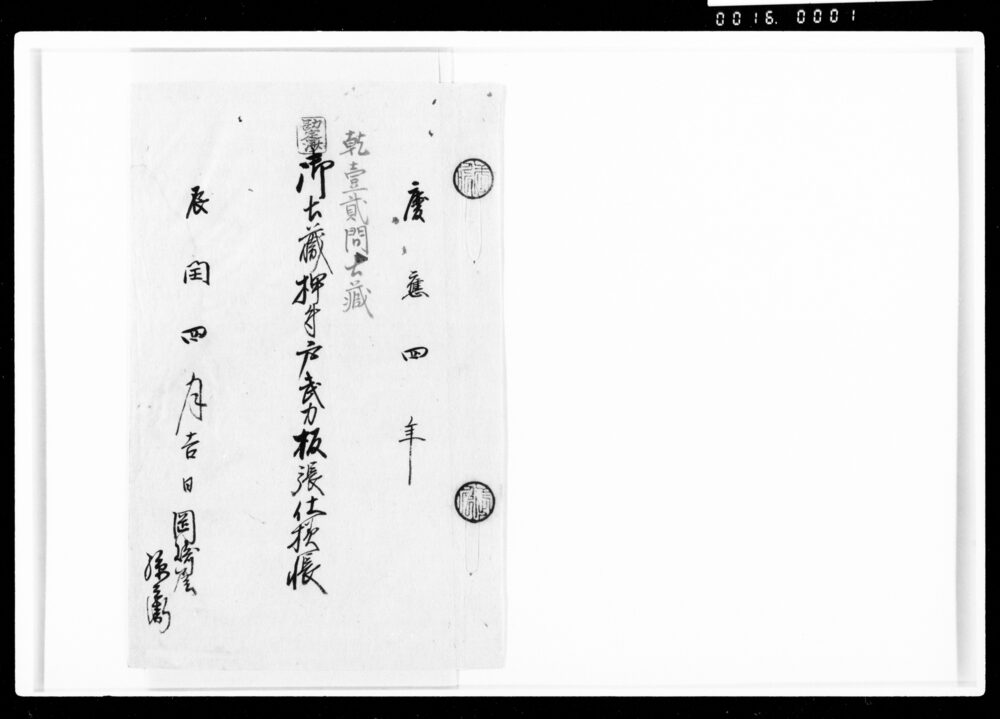 0016. 0001
慶應四年
乾壹貳間土藏
御土藏押手戸武力板張仕損帳
辰閏四月吉日 岡崎屋
孫兵衛